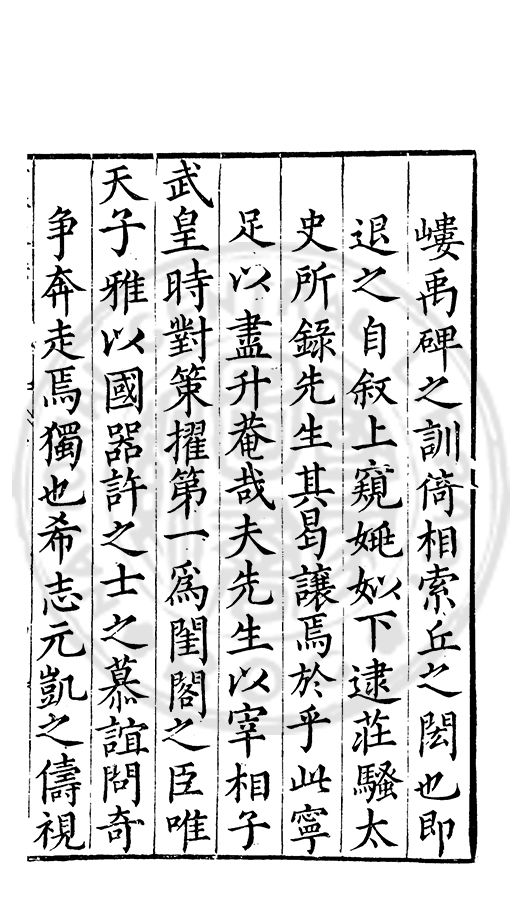 嶁禹碑之訓倚相索丘之閎也即
退之自叙上窺姚姒下逮莊騷太
史所錄先生其曷讓焉於乎此寧
足以盡升菴哉夫先生以宰相子
武皇時對策擢第一爲閨閣之臣唯
天子雅以國器許之士之慕誼問奇
争奔走焉獨也希志元凱之儔視